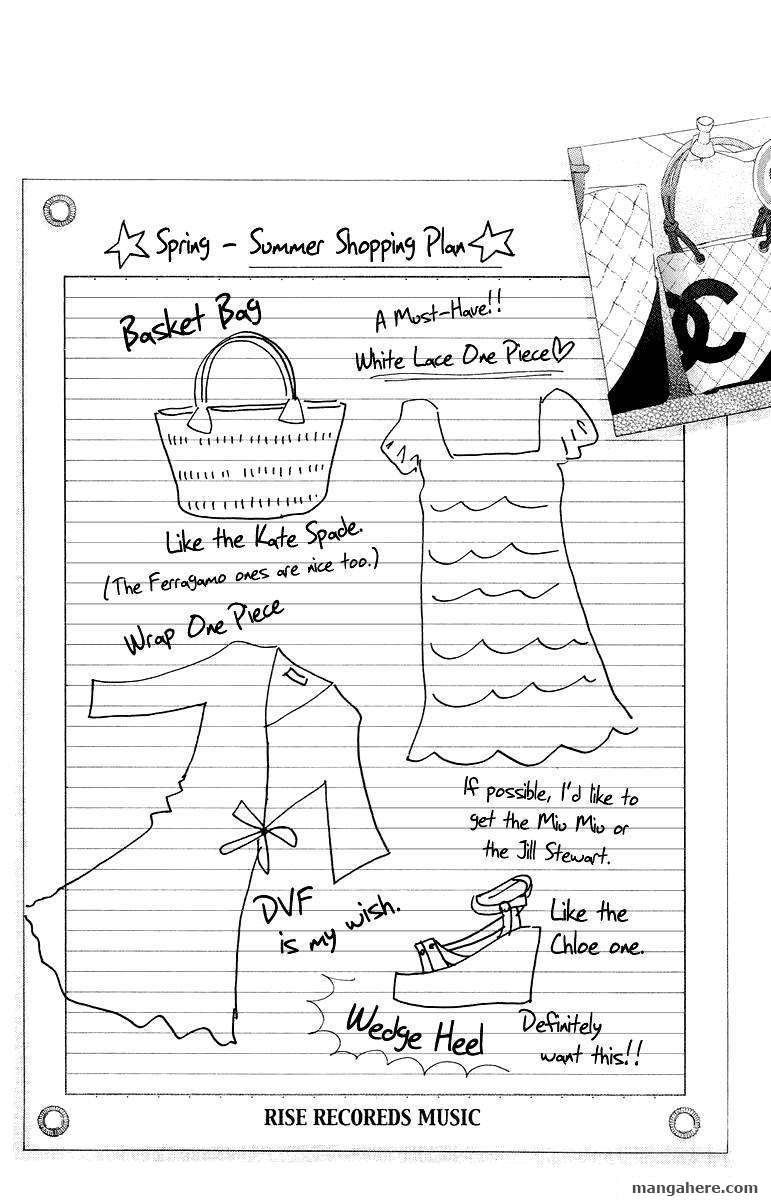 Spring - Summer Shopping Plan
Basket Bag
A Must-Have!!
White Lace One Piece♡
Like the Kate Spade.
(The Ferragamo ones are nice too.)
Wrap One Piece
If possible, I'd like to
get the Miu Miu or
the Jill Stewart.
DVF
is my wish.
Like the
Chloe one.
Wedge Heel
Definitely
want this!!
RISE RECOREDS MUSIC
mangahere.com